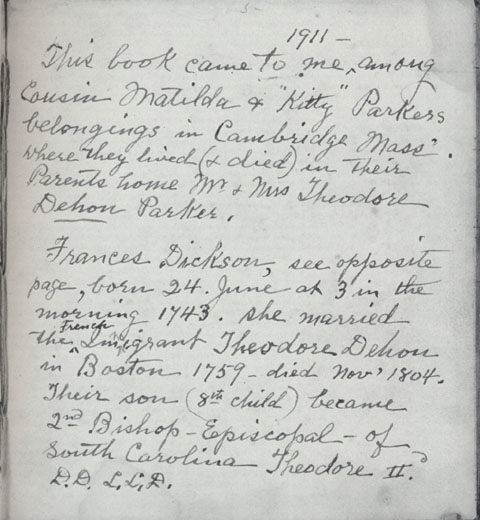 1911 -
This book came to me, among
Cousin Matilda & "Kitty" Parkers
belongings in Cambridge Mass.
where they lived (& died) in their
Parents home Mr & Mrs Theodore
Dehon Parker.
Frances Dickson, see opposite
page, born 24. June at 3 in the
morning 1743. she married
the French Imigrant Theodore Dehon
in Boston 1759 - died Nov' 1804.
Their son (8th child) became
2nd Bishop - Episcopal - of
South Carolina Theodore II.d
D.D. L.L.D.